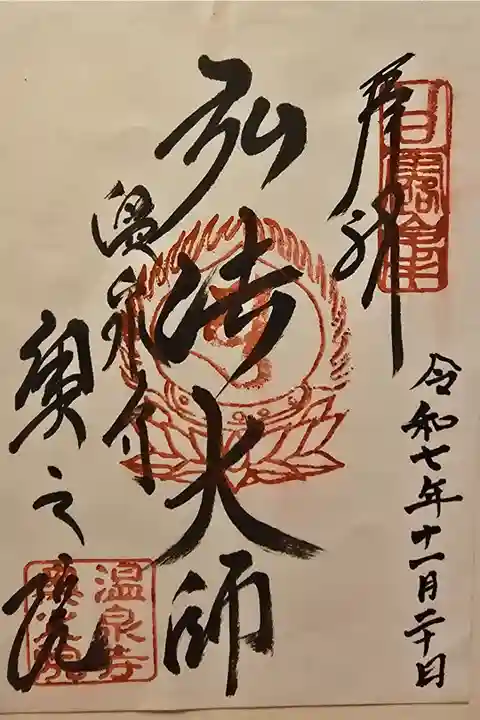 令和七年十一月二十日
弘法大師
温泉寺
奥之院
温泉寺